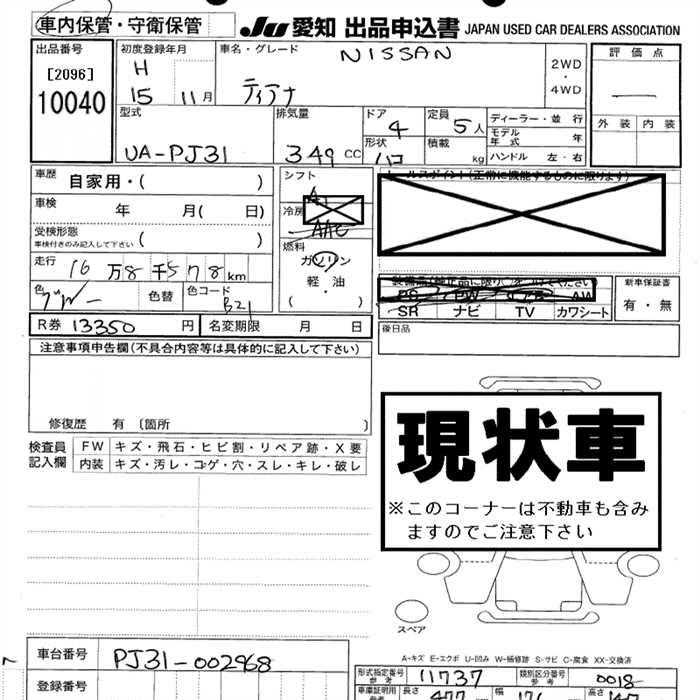 車内保管・守衛保管 JU 愛知 出品申込書 JAPAN USED CAR DEALERS ASSOCIATION
出品番号 初度登録年月 車名・グレード NISSAN 2WD・4WD 評価点
[2096] H 15 11月 ティアナ
10040
型式 排気量 ドア 定員 ディーラー・並行 外装 内装
4 5人 モデル年式 年
UA-PJ31 349 cc 形状 ハコ 積載 kg ハンドル 左・右
車歴 自家用・( ) シフト
車検 年 月( 日) 冷房 AAC
受検形態 車検付きのみ記入して下さい ( ) 燃料
走行 16万8千578km ガソリン
軽・油
( ・ )
色 色替 色コード B21
装備品(純正品に限り○をつけてください) 新車保証書
PS PW AW 有・無
SR ナビ TV カワシート
R券 13350円 名変期限 月 日 後日品
注意事項申告欄(不具合内容等は具体的に記入して下さい)
現状車
修復歴 有 〔箇所 〕
検査員記入欄 FW キズ・飛石・ヒビ割・リペア跡・X要
内装 キズ・汚レ・コゲ・穴・スレ・キレ・破レ
※このコーナーは不動車も含み
ますのでご注意下さい
スペア
A-キズ E-エクボ U-凹み W-補修跡 S-サビ C-腐食 XX-交換済
車台番号 PJ31-002968 形式指定番号 参考 11737 類別区分番号 参考 0018
登録番号 車車証明用 参考 長さ 477 幅 176 高さ 147